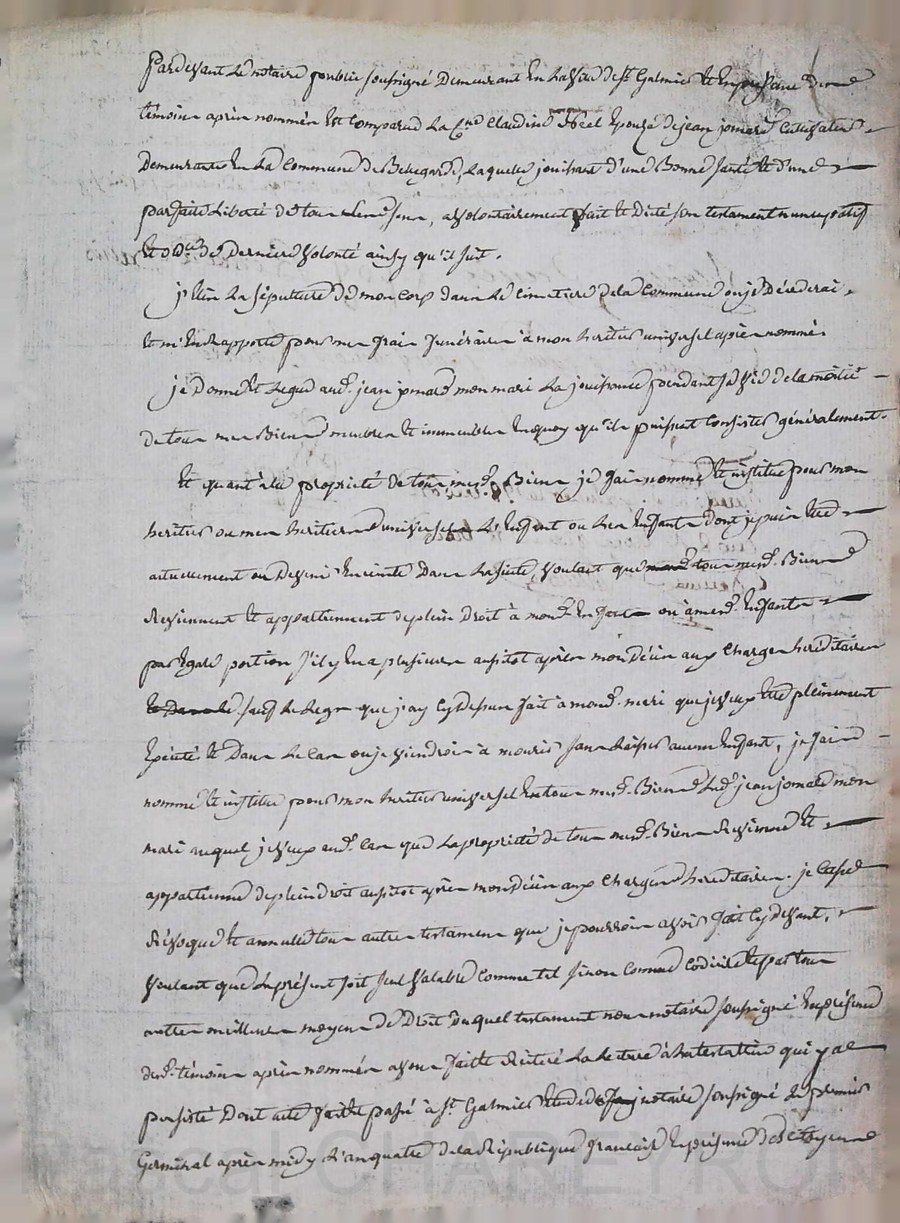 Pardevant Le notaire public soussigné Demeurant En La Ville de st Galmier Et En présence des
témoins après nommés Est Comparue La Cne Claudine épouze de jean jomard Cultivateur
Demeurante En La Commune de Bellegarde, Laquelle jouissant d'une Bonne santé Et d'une
parfaite Liberté de tous ses sens, a volontairement fait Et Dicté son testament nuncupatif
Et de Derniere volonté ainsy qu'il suit.
j'Elis La sépulture de mon Corp dans Le Cimetiere de la Commune ou je Décederai,
Et m'En Rapporte pour mes frais funéraires à mon heritier universel après nommé.
je Donne Et Legue aud. jean jomard mon mari La jouissance pendant sa vie de la moitié
de tous mes Biens meubles Et immeubles En quoy qu'ils puissent Consister généralement.
Et quant à la propriété de tous mesd. Biens je fais nomme Et institue pour mon
heritier ou mes heritiers universels L'Enfant ou Les Enfants dont je puis Etre
actuellement ou Devenir Enceinte Dans La suite, voulant que tous mesd. Biens
Reviennent Et appartiennent de plein Droit à mond. Enfant ou à mesd. Enfants
par Egale portion s'il y En a plusieurs aussitot après mon Décès aux Charges héréditaires
sauf Le Legs que j'ay Cy dessus fait à mond. mari que je veux Etre pleinement
Exécuté. Et Dans Le Cas ou je viendrois à mourir sans Laisser aucun Enfant, je fais
nomme Et institue pour mon heritier universel En tous mesd. Biens Led. jean jomard mon
mari auquel je veux aud. Cas que La propriété de tous mesd. Biens Revienne Et
appartienne de plein droit aussitot après mon Décès aux Charges héréditaires. je Casse
Révoque Et annulle tous autres testaments que je pourrois avoir fait Cy devant,
voulant que Le présent soit seul valable Comme tel sinon Comme Codicile Et par tous
autres meilleurs moyens de Droit Duquel testament nous notaire soussigné En présence
desd. témoins après nommés avons fait Et Réitéré La Lecture à La testatrice qui y a
persisté Dont acte fait Et passé à st Galmier Etude de notaire soussigné Le premier
Germinal après midy L'an quatre de la République française En présence des Citoyens